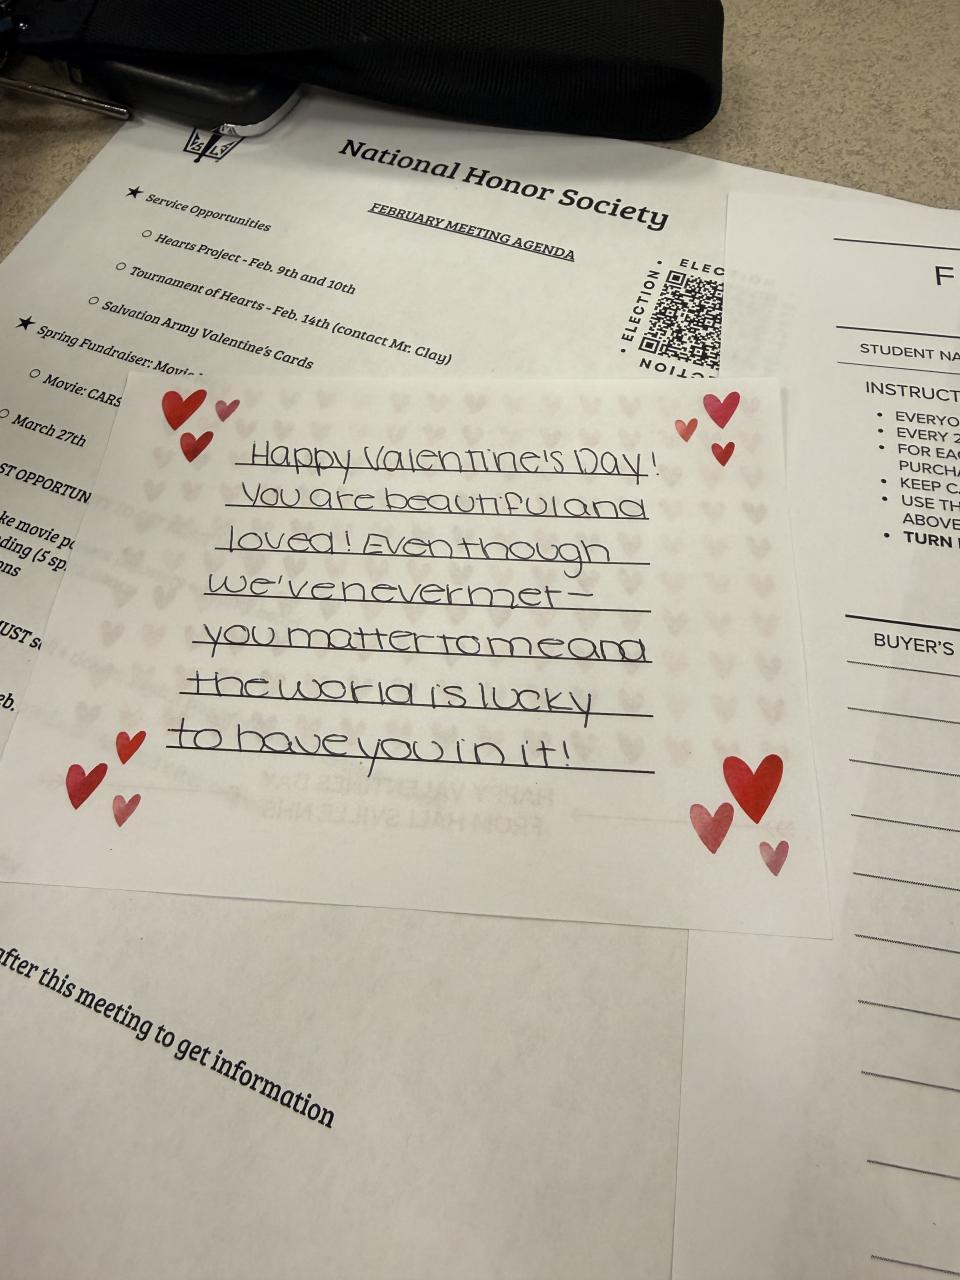 National Honor Society
FEBRUARY MEETING AGENDA
Service Opportunities
Hearts Project - Feb. 9th and 10th
Tournament of Hearts - Feb. 14th (contact Mr. Clay)
Salvation Army Valentine's Cards
Spring Fundraiser: Movie
Movie: CARS
March 27th
ST OPPORTUN
ke movie po
ding (5 sp
ons
MUST
eb.
ELEC
ELECTION
CTION
Happy Valentine's Day!
You are beautiful and
loved! Even though
we've never met -
you matter to me and
the world is lucky
to have you in it!
HAPPY VALENTINES DAY
FROM HALLSVILLE NHS
after this meeting to get information
F
STUDENT NA
INSTRUCT
EVERYO
EVERY 2
FOR EAC
PURCHA
KEEP C
USE TH
ABOVE
TURN
BUYER'S